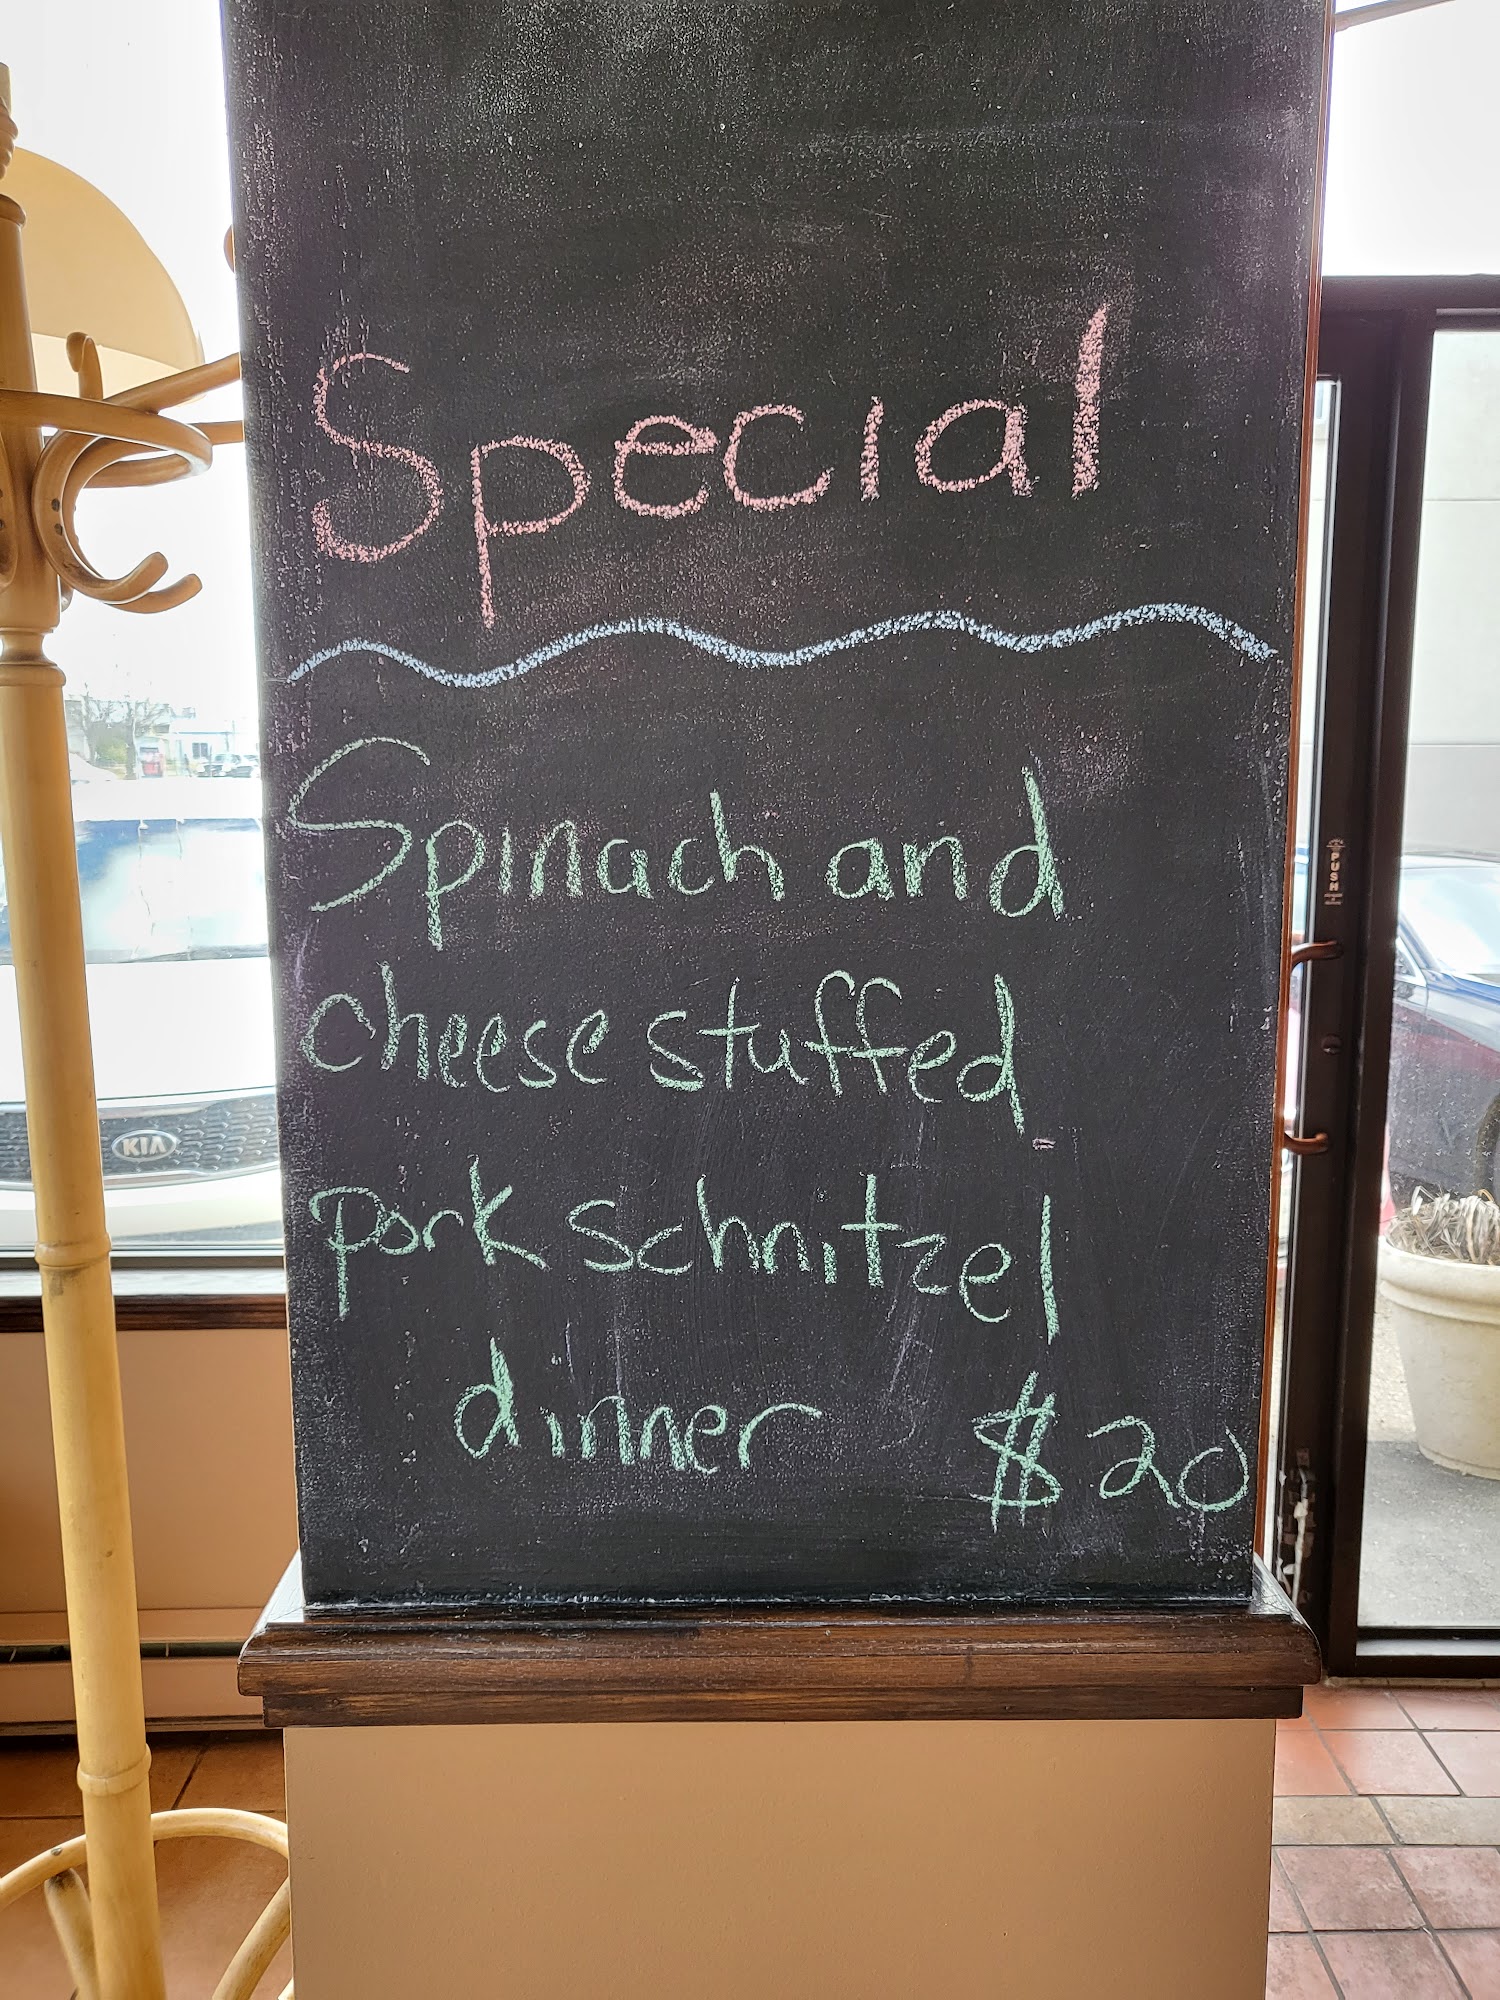 Special
Spinach and
cheese stuffed
pork schnitzel
dinner $20
KIA
PUSH